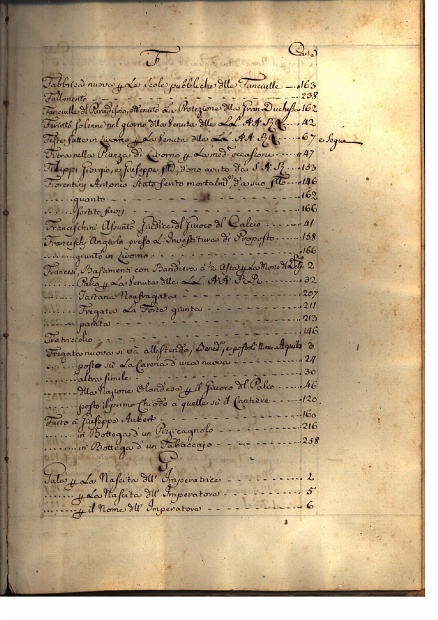 F Carta
Fabbrica nuova p Le scole pubbliche delle Fanciulle 163
Fallimento 238
Fanciulle di Paradiso, ottenuto La Protezione della Gran Duchessa 162
Feriato solenne nel giorno della Venuta delle LL. AA. RR. 42
Feste fatte in Livorno p La Venuta delle LL. AA. RR. 67 e segue
Fiera nella Piazza di Livorno p La med.a occasione 47
Filippi Giorgio, e Giuseppe dono avuto da S. A. R. 153
Fiorentini Antonio Stato ferito mortalm.e da suo 146
guarito 162
sortito fuori 166
Franceschini Assunto Giudice del Giuoco di Calcio 41
Franceschi Angelo preso L'Investitura di Proposto 158
giunto in Livorno 166
Francesi Bastimenti con Bandiera à 2
Palio p La Venuta delle LL. AA. RR. 32
Tartana Naufragata 207
Fregata La Forte giunta 211
partita 213
Fratricidio 146
Fregata nuova si và allestendo, 3
posto sù La Carena d'una nuova 24
altra simile 30
della Nazione Olandese p il Giuoco del Palio 46
posto il primo Chiodo a quella sù il Cantiere 120
Furto à Giuseppe Aubert 160
in Bottega d'un Pizzicagnolo 216
in Bottega d'un Tabaccajo 238
G
Gala p La Nascita dell' Imperatrice 2
p La Nascita dell' Imperatore 5
p il Nome dell' Imperatore 6